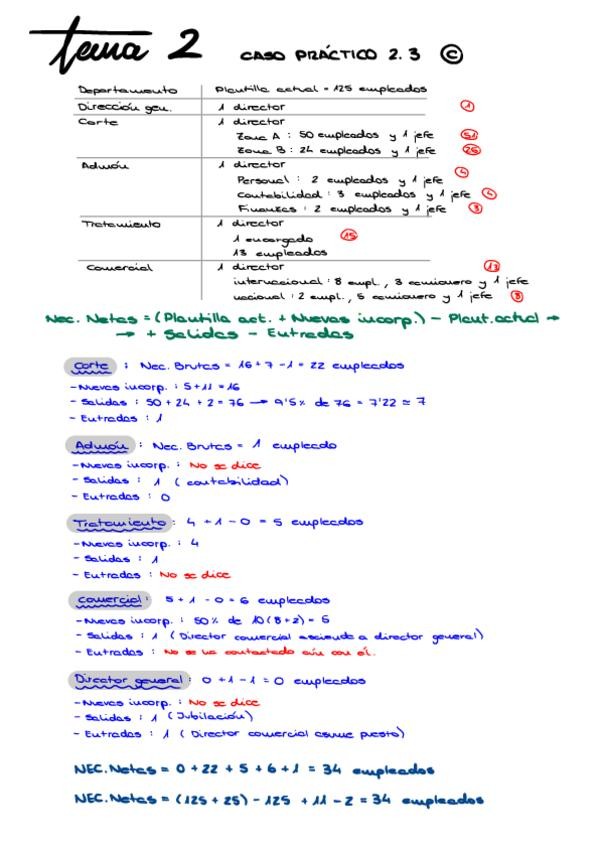 tema 2 CASO PRÁCTICO 2.3 ©
Departamento Plantilla actual = 125 empleados
Dirección gen. 1 director 1
Corte 1 director
Zona A : 50 empleados y 1 jefe 51
Zona B : 24 empleados y 1 jefe 25
Admón 1 director
Personal : 2 empleados y 1 jefe 4
Contabilidad : 3 empleados y 1 jefe 4
Finanzas : 2 empleados y 1 jefe 3
Tratamiento 1 director
1 encargado 15
13 empleados
Comercial 1 director 13
internacional : 8 empl., 3 camionero y 1 jefe
nacional : 2 empl., 5 camionero y 1 jefe 8
Nec. Netas = (Plantilla act. + Nuevas incorp.) - Plant.actual →
→ + Salidas - Entradas
Corte : Nec. Brutas = 16 + 7 - 1 = 22 empleados
- Nuevas incorp. : 5 + 11 = 16
- Salidas : 50 + 24 + 2 = 76 → 9'5% de 76 = 7'22 ≈ 7
- Entradas : 1
Admón : Nec. Brutas = 1 empleado
- Nuevas incorp. : No se dice
- Salidas : 1 (contabilidad)
- Entradas : 0
Tratamiento : 4 + 1 - 0 = 5 empleados
- Nuevas incorp. : 4
- Salidas : 1
- Entradas : No se dice
Comercial : 5 + 1 - 0 = 6 empleados
- Nuevas incorp. : 50% de 10 (8+2) = 5
- Salidas : 1 (Director comercial asciende a director general)
- Entradas : No se ha contactado aún con él.
Director general : 0 + 1 - 1 = 0 empleados
- Nuevas incorp. : No se dice
- Salidas : 1 (Jubilación)
- Entradas : 1 (Director comercial asume puesto)
NEC. Netas = 0 + 22 + 5 + 6 + 1 = 34 empleados
NEC. Netas = (125 + 25) - 125 + 11 - 2 = 34 empleados